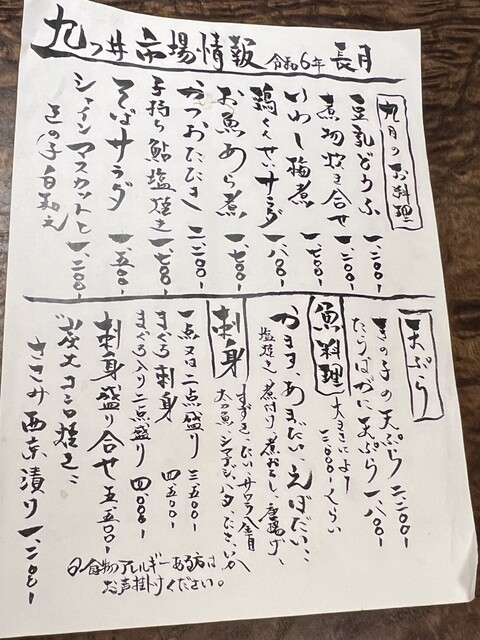 九つ井市場情報 令和6年 長月
九月のお料理
豆乳どうふ 一、二〇〇-
煮物炊き合せ 一、二〇〇-
いわし梅煮 一、七〇〇-
鶏くんせいサラダ 一、八〇〇-
お魚あら煮 一、七〇〇-
かつおたたき 二、二〇〇-
子持ち鮎塩焼き 一、七〇〇-
そばサラダ 一、五〇〇-
シャインマスカットと
きの子白和え 一、二〇〇-
天ぷら
きの子の天ぷら 二、二〇〇-
たらばがに天ぷら 一、八〇〇-
魚料理
大きさにより
二、〇〇〇-くらい
かます、あまだい、えぼだい
塩焼き、煮付け、煮おろし、唐揚げ、
刺身
すずき、たい、サワラ、金目
太刀魚、シマアジ、ハタ、たこ、いか
一点又は二点盛り 三、五〇〇-
まぐろ刺身 四、五〇〇-
まぐろ入り二点盛り 四、〇〇〇-
刺身盛り合せ 五、五〇〇-
炭火コンロ焼き
ささみ西京漬り 一、二〇〇-
食物アレルギーある方は
お声掛けください。